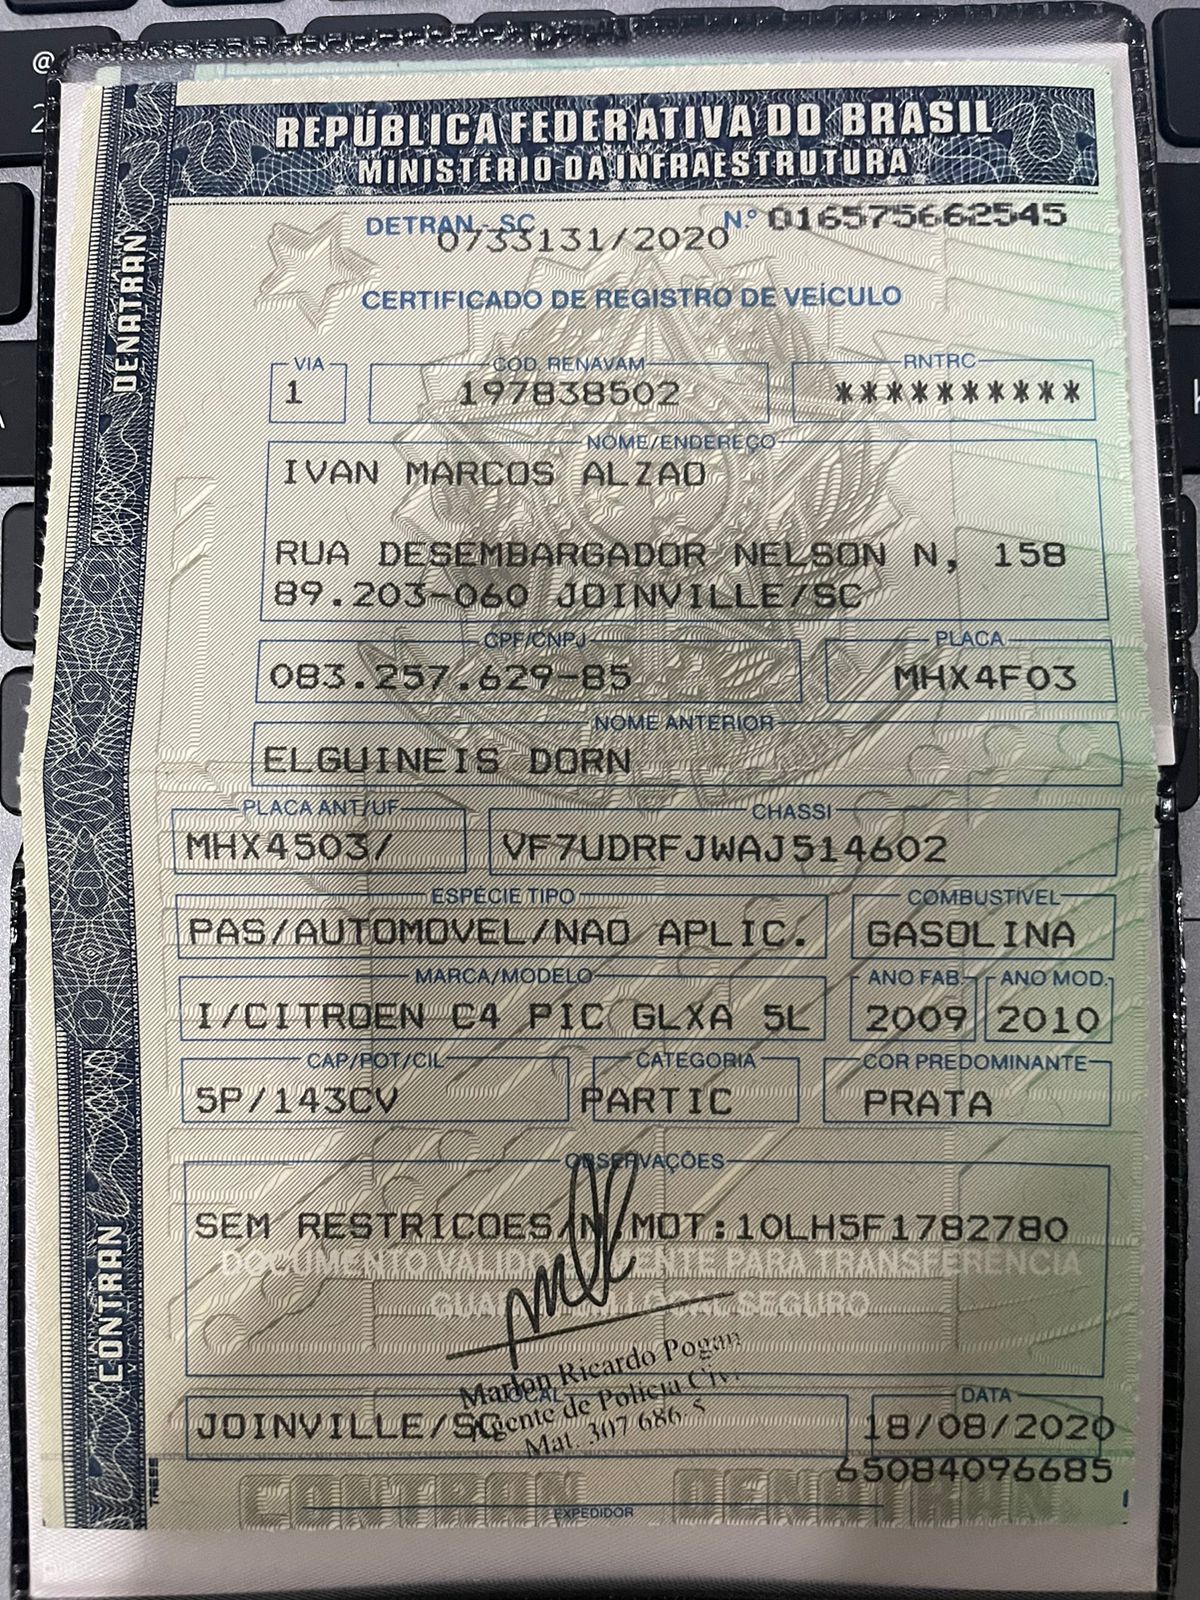 REPÚBLICA FEDERATIVA DO BRASIL
MINISTÉRIO DA INFRAESTRUTURA
DETRAN - SC Nº 016575662545
0733131/2020
CERTIFICADO DE REGISTRO DE VEÍCULO
VIA CÓD. RENAVAM RNTRC
1 197838502 **********
NOME/ENDEREÇO
IVAN MARCOS ALZAO
RUA DESEMBARGADOR NELSON N, 158
89.203-060 JOINVILLE/SC
CPF/CNPJ PLACA
083.257.629-85 MHX4F03
NOME ANTERIOR
ELGUINEIS DORN
PLACA ANT/UF CHASSI
MHX4503/ VF7UDRFJWAJ514602
ESPÉCIE TIPO COMBUSTÍVEL
PAS/AUTOMOVEL/NAO APLIC. GASOLINA
MARCA/MODELO ANO FAB. ANO MOD.
I/CITROEN C4 PIC GLXA 5L 2009 2010
CAP/POT/CIL CATEGORIA COR PREDOMINANTE
5P/143CV PARTIC PRATA
OBSERVAÇÕES
SEM RESTRICOES/N/MOT:10LH5F1782780
DOCUMENTO VÁLIDO SOMENTE PARA TRANSFERÊNCIA
GUARDE EM LOCAL SEGURO
Marlon Ricardo Pogan
Agente de Polícia Civil
Mat. 307 686-5
LOCAL DATA
JOINVILLE/SC 18/08/2020
65084096685
CONTRAN DENATRAN
EXPEDIDOR
DENATRAN
CONTRAN